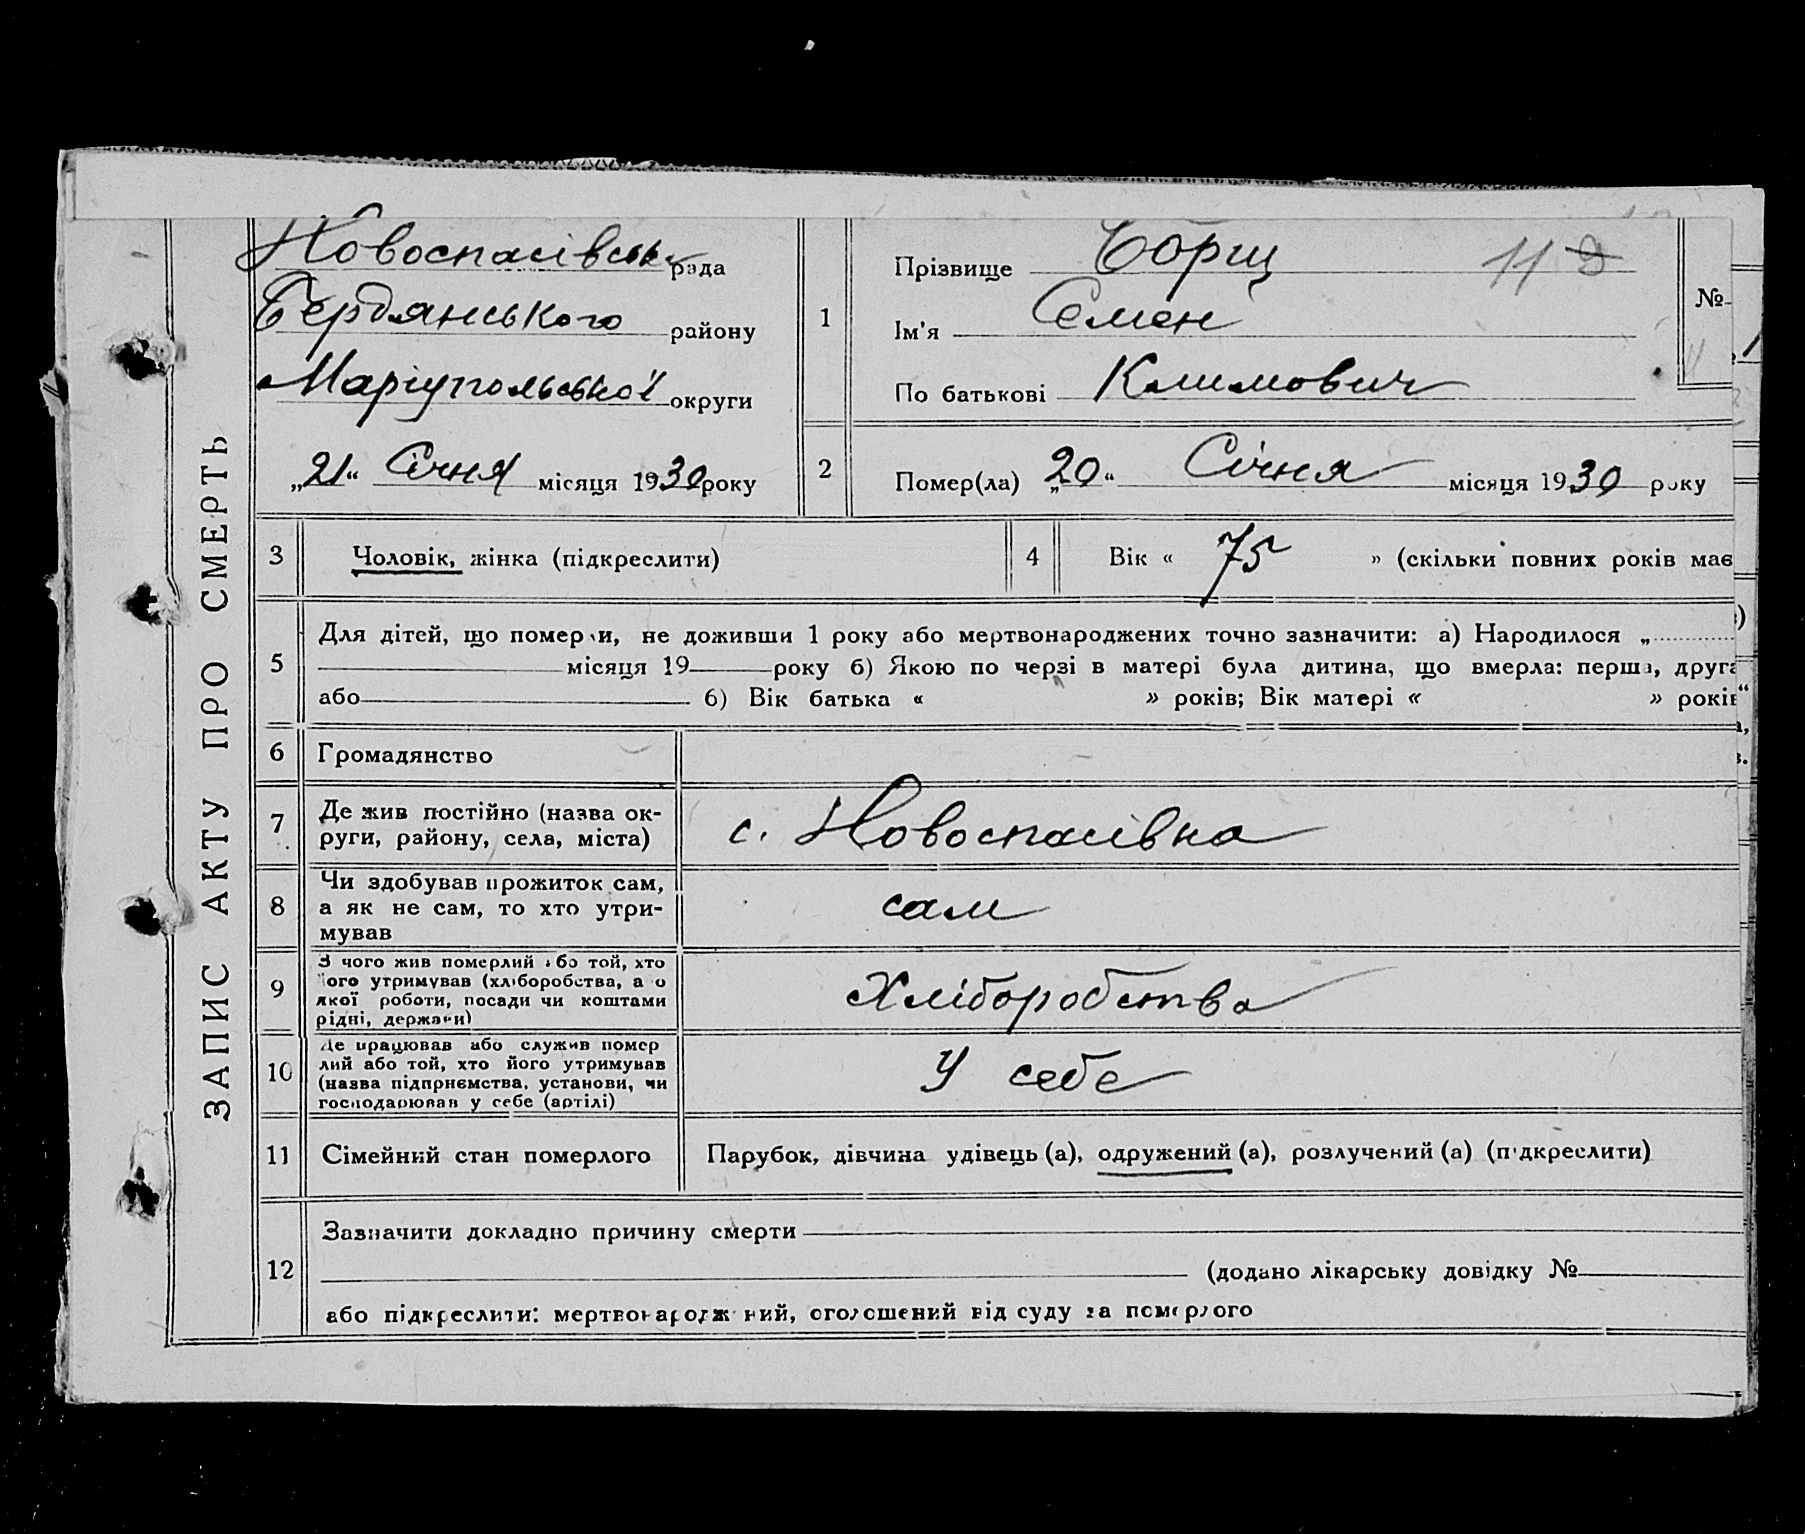 ЗАПИС АКТУ ПРО СМЕРТЬ
Новоспасівськ рада
Бердянського району
Маріупольської округи
„21“ Січня місяця 1930 року
1
Прізвище Борщ 11
Ім'я Семен
По батькові Климович
№
2
Помер(ла) „20“ Січня місяця 1930 року
3 Чоловік, жінка (підкреслити)
4 Вік « 75 » (скільки повних років має
5
Для дітей, що померли, не доживши 1 року або мертвонароджених точно зазначити: а) Народилося „
місяця 19 року б) Якою по черзі в матері була дитина, що вмерла: перша, друга
або 6) Вік батька « » років; Вік матері « » років
6 Громадянство
7 Де жив постійно (назва ок-
руги, району, села, міста)
с. Новоспасівка
8 Чи здобував прожиток сам,
а як не сам, то хто утри-
мував
сам
9 З чого жив померлий або той, хто
його утримував (хліборобства, а о
якої роботи, посади чи коштами
рідні, держави)
Хліборобства
10 Де працював або служив помер
лий або той, хто його утримував
(назва підприємства, установи, чи
господарював у себе (артілі)
У себе
11 Сімейний стан померлого
Парубок, дівчина удівець (а), одружений (а), розлучений (а) (підкреслити)
12
Зазначити докладно причину смерти
(додано лікарську довідку №
або підкреслити: мертвонароджений, оголошений від суду за померлого